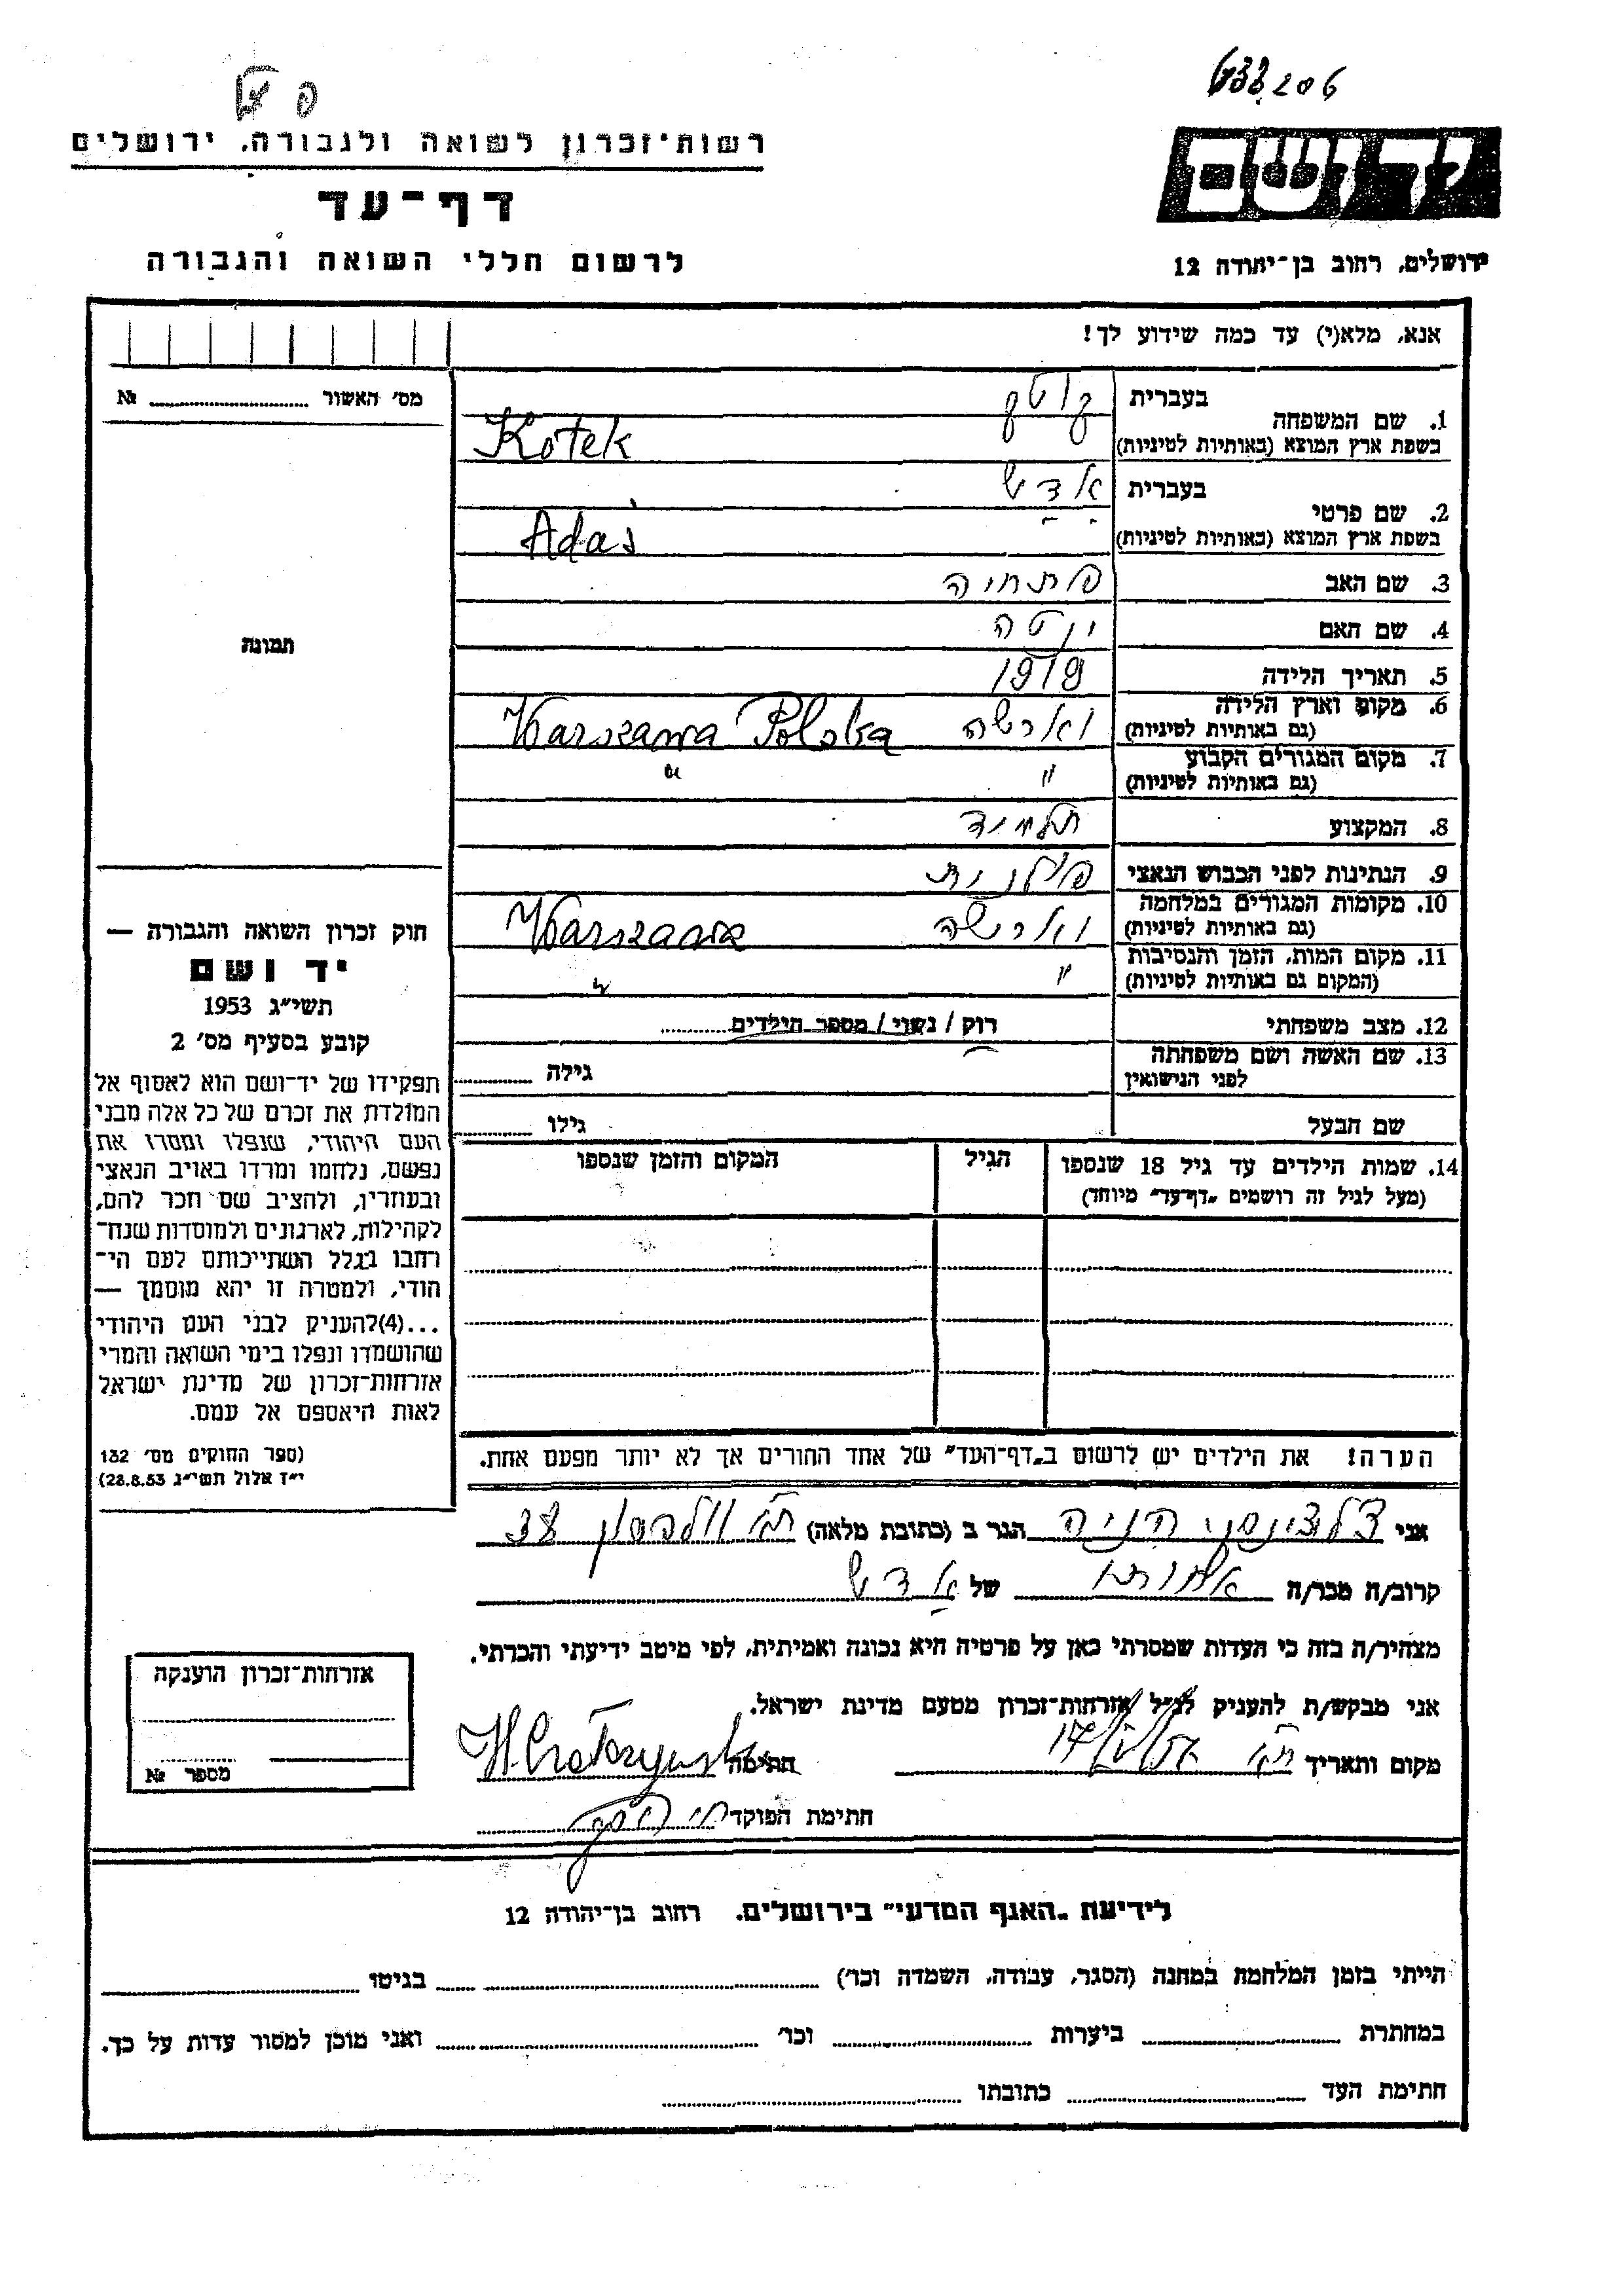 פ
רשות-זכרון לשואה ולגבורה, ירושלים
דף-עד
לרשום חללי השואה והגבורה
יד ושם
ירושלים, רחוב בן-יהודה 12
אנא, מלא(י) עד כמה שידוע לך!
מס׳ האשור № 
1. שם המשפחה בעברית קוטק
בשפת ארץ המוצא (באותיות לטיניות) Kotek
2. שם פרטי בעברית אדש
בשפת ארץ המוצא (באותיות לטיניות) Adaś
3. שם האב פתחיה
4. שם האם יטה
5. תאריך הלידה 1919
6. מקום וארץ הלידה (גם באותיות לטיניות) וארשה Warszawa Polska
7. מקום המגורים הקבוע (גם באותיות לטיניות) " "
8. המקצוע תלמיד
9. הנתינות לפני הכבוש הנאצי פולנית
10. מקומות המגורים במלחמה (גם באותיות לטיניות) וארשה Warszawa
11. מקום המות, הזמן והנסיבות (המקום גם באותיות לטיניות) " "
12. מצב משפחתי רוק / נשוי / מספר הילדים
13. שם האשה ושם משפחתה לפני הנישואין גילה
שם הבעל גילו
14. שמות הילדים עד גיל 18 שנספו הגיל המקום והזמן שנספו
(מעל לגיל זה רושמים „דף-עד" מיוחד)
הערה! את הילדים יש לרשום ב„דף-העד" של אחד ההורים אך לא יותר מפעם אחת.
תמונה
חוק זכרון השואה והגבורה —
יד ושם
תשי"ג 1953
קובע בסעיף מס׳ 2
תפקידו של יד-ושם הוא לאסוף אל
המולדת את זכרם של כל אלה מבני
העם היהודי, שנפלו ומסרו את
נפשם, נלחמו ומרדו באויב הנאצי
ובעוזריו, ולהציב שם וזכר להם,
לקהילות, לארגונים ולמוסדות שנח-
רבו בגלל השתייכותם לעם הי-
הודי, ולמטרה זו יהא מוסמך —
...(4)להעניק לבני העם היהודי
שהושמדו ונפלו בימי השואה והמרי
אזרחות-זכרון של מדינת ישראל
לאות היאספם אל עמם.
(ספר החוקים מס׳ 132
י"ז אלול תשי"ג 28.8.53)
אני הניה הגר ב (כתובת מלאה) ת"א 38
קרוב/ה מכר/ה אחותו של אדש
מצהיר/ה בזה כי העדות שמסרתי כאן על פרטיה היא נכונה ואמיתית, לפי מיטב ידיעתי והכרתי.
אני מבקש/ת להעניק לנ"ל אזרחות-זכרון מטעם מדינת ישראל.
מקום ותאריך ת"א חתימה
חתימת הפוקד
אזרחות-זכרון הוענקה
מספר №
לידיעת „האגף המדעי" בירושלים, רחוב בן-יהודה 12
הייתי בזמן המלחמה במחנה (הסגר, עבודה, השמדה וכו׳) בגיטו
במחתרת ביערות וכו׳ ואני מוכן למסור עדות על כך.
חתימת העד כתובתו